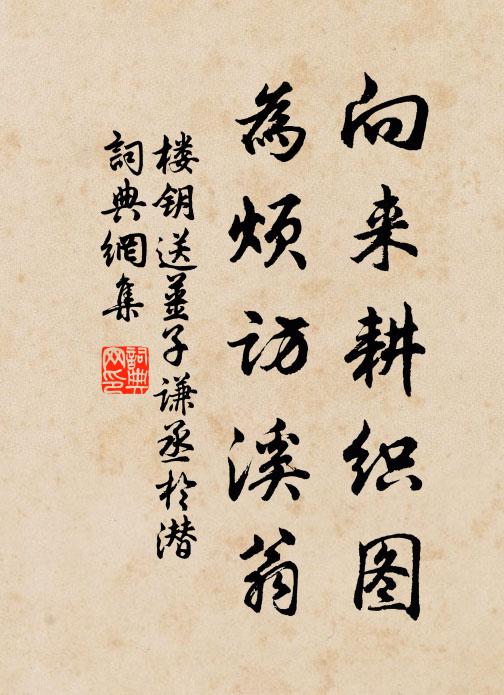 向来耕织图
為烦访溪翁
楼钥送薑子谦丞於潜
詞典網集
詞典網印